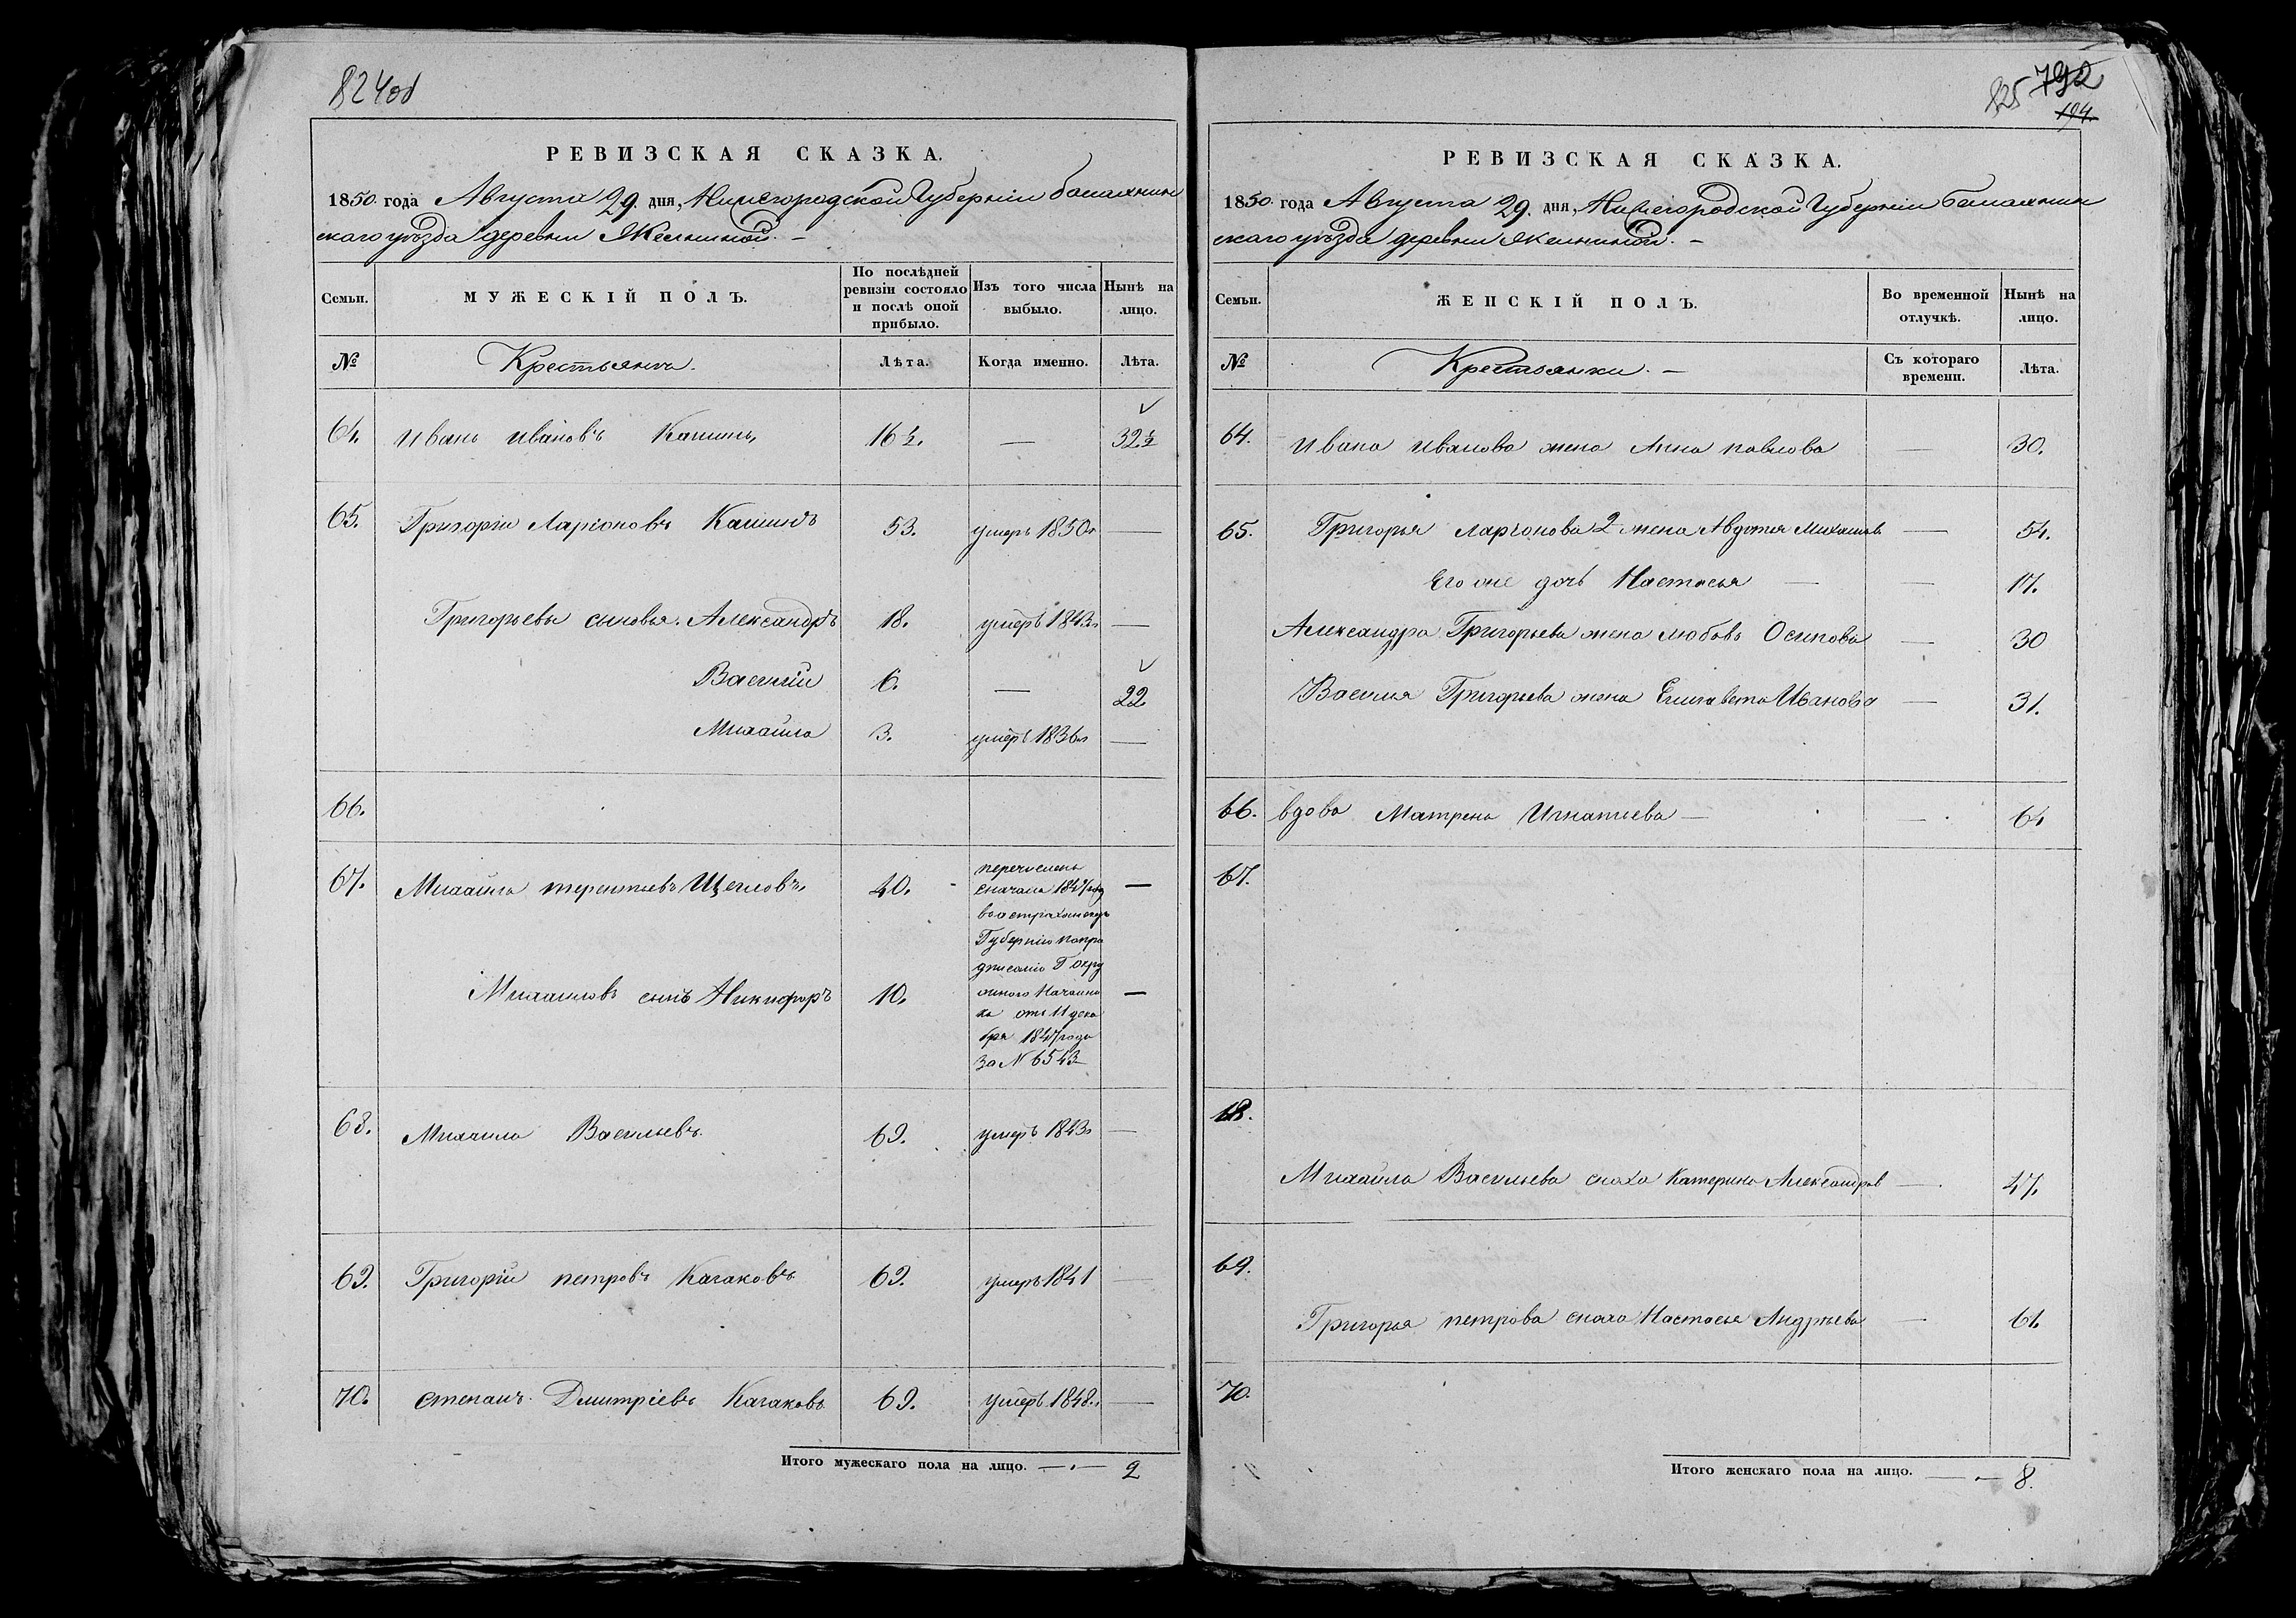 824об
РЕВИЗСКАЯ СКАЗКА.
1850. года Августа 29. дня, Нижегородской Губерніи балахнин
скаго уѣзда деревни
Семьи.
МУЖЕСКІЙ ПОЛЪ.
По послѣдней ревизіи состояло и послѣ оной прибыло.
Изъ того числа выбыло.
Нынѣ на лицо.
№
Крестьяне.
Лѣта.
Когда именно.
Лѣта.
64. Иванъ Ивановъ 16½. — 32½
65. Григорій Ларіоновъ 53. умеръ 1850г —
Григорьевы сыновья. Александръ 18. умеръ 1843г —
Василій 6. — 22
Михайла 3. умеръ 1836г —
66.
67. Михайла терентьевъ Щегловъ 40. —
перечисленъ
сначала 1847 год
воастраханскую
Губернію попре
дписанію Г Окру
жнаго Начальни
ка отъ 11 дека
бря 1847 года
за N 6543
Михайловъ сынъ Никифоръ 10. —
68. Михайла Васильевъ. 69. умеръ 1843г —
69. Григорій петровъ Казаковъ 69. умеръ 1841 —
70. степанъ Дмитріевъ Казаковъ 69. умеръ 1848г. —
Итого мужескаго пола на лицо. — 2
825 792
194.
РЕВИЗСКАЯ СКАЗКА.
1850. года Августа 29. дня, Нижегородской Губерніи балахнин
скаго уѣзда деревни
Семьи.
ЖЕНСКІЙ ПОЛЪ.
Во временной отлучкѣ.
Нынѣ на лицо.
№
Крестьянки. —
Съ котораго времени.
Лѣта.
64. Ивана Иванова жена Анна павлова — 30.
65. Григорья Ларіонова 2 жена Авдотья Михайлов — 54.
Его же дочь Настасья — 17.
Александра Григорьева жена любовь Осипова — 30
Василья Григорьева жена Елизавета Иванова — 31.
66. вдова Матрена Игнатьева — — 64
67.
68.
Михайла Васильева сноха Катерина Александров — 47.
69.
Григорья петрова сноха Настасья Андреева — 61.
70.
Итого женскаго пола на лицо. — 8.